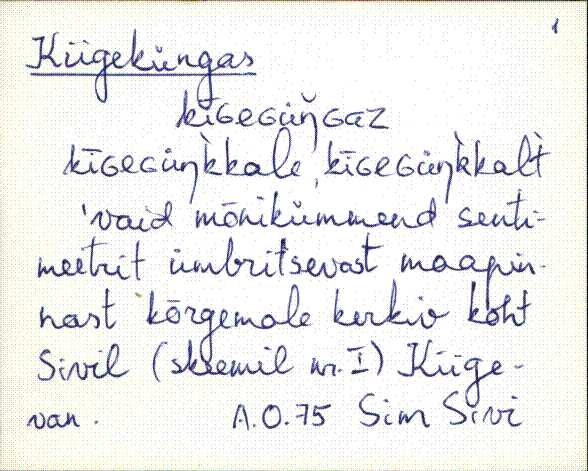 1
Kiigeküngas
kīɢeɢüŋ̆ɢaz
kīɢeɢüŋ̀kkale, kīɢeɢüŋ̀kkalt̀
'vaid mõnikümmend senti-
meetrit ümbritsevast maapin-
nast kõrgemale kerkiv koht
Sivil (skeemil nr. I) Kiige-
van.    A.O.75 Sim Sivi